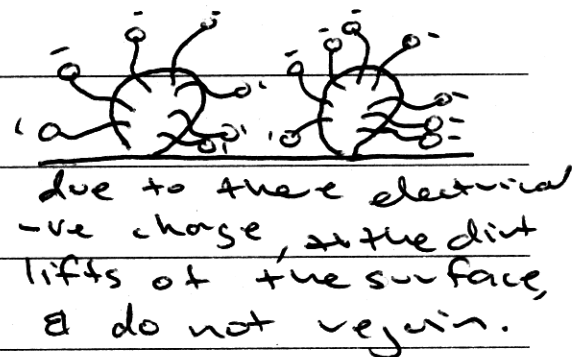 due to there electrical
-ve charge, the dirt
lifts of the surface,
& do not regain.